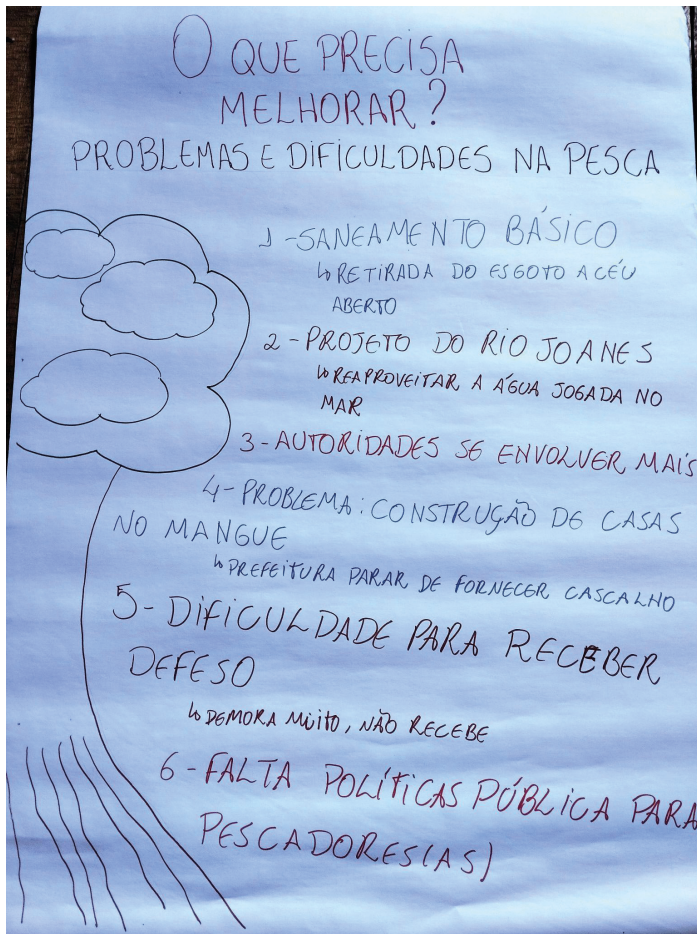 O QUE PRECISA
MELHORAR?
PROBLEMAS E DIFICULDADES NA PESCA
1 - SANEAMENTO BÁSICO
↳ RETIRADA DO ESGOTO A CÉU
ABERTO
2 - PROJETO DO RIO JOANES
↳ REAPROVEITAR A ÁGUA JOGADA NO
MAR
3 - AUTORIDADES SE ENVOLVER MAIS
4 - PROBLEMA: CONSTRUÇÃO DE CASAS
NO MANGUE
↳ PREFEITURA PARAR DE FORNECER CASCALHO
5 - DIFICULDADE PARA RECEBER
DEFESO
↳ DEMORA MUITO, NÃO RECEBE
6 - FALTA POLÍTICAS PÚBLICA PARA
PESCADORES(AS)